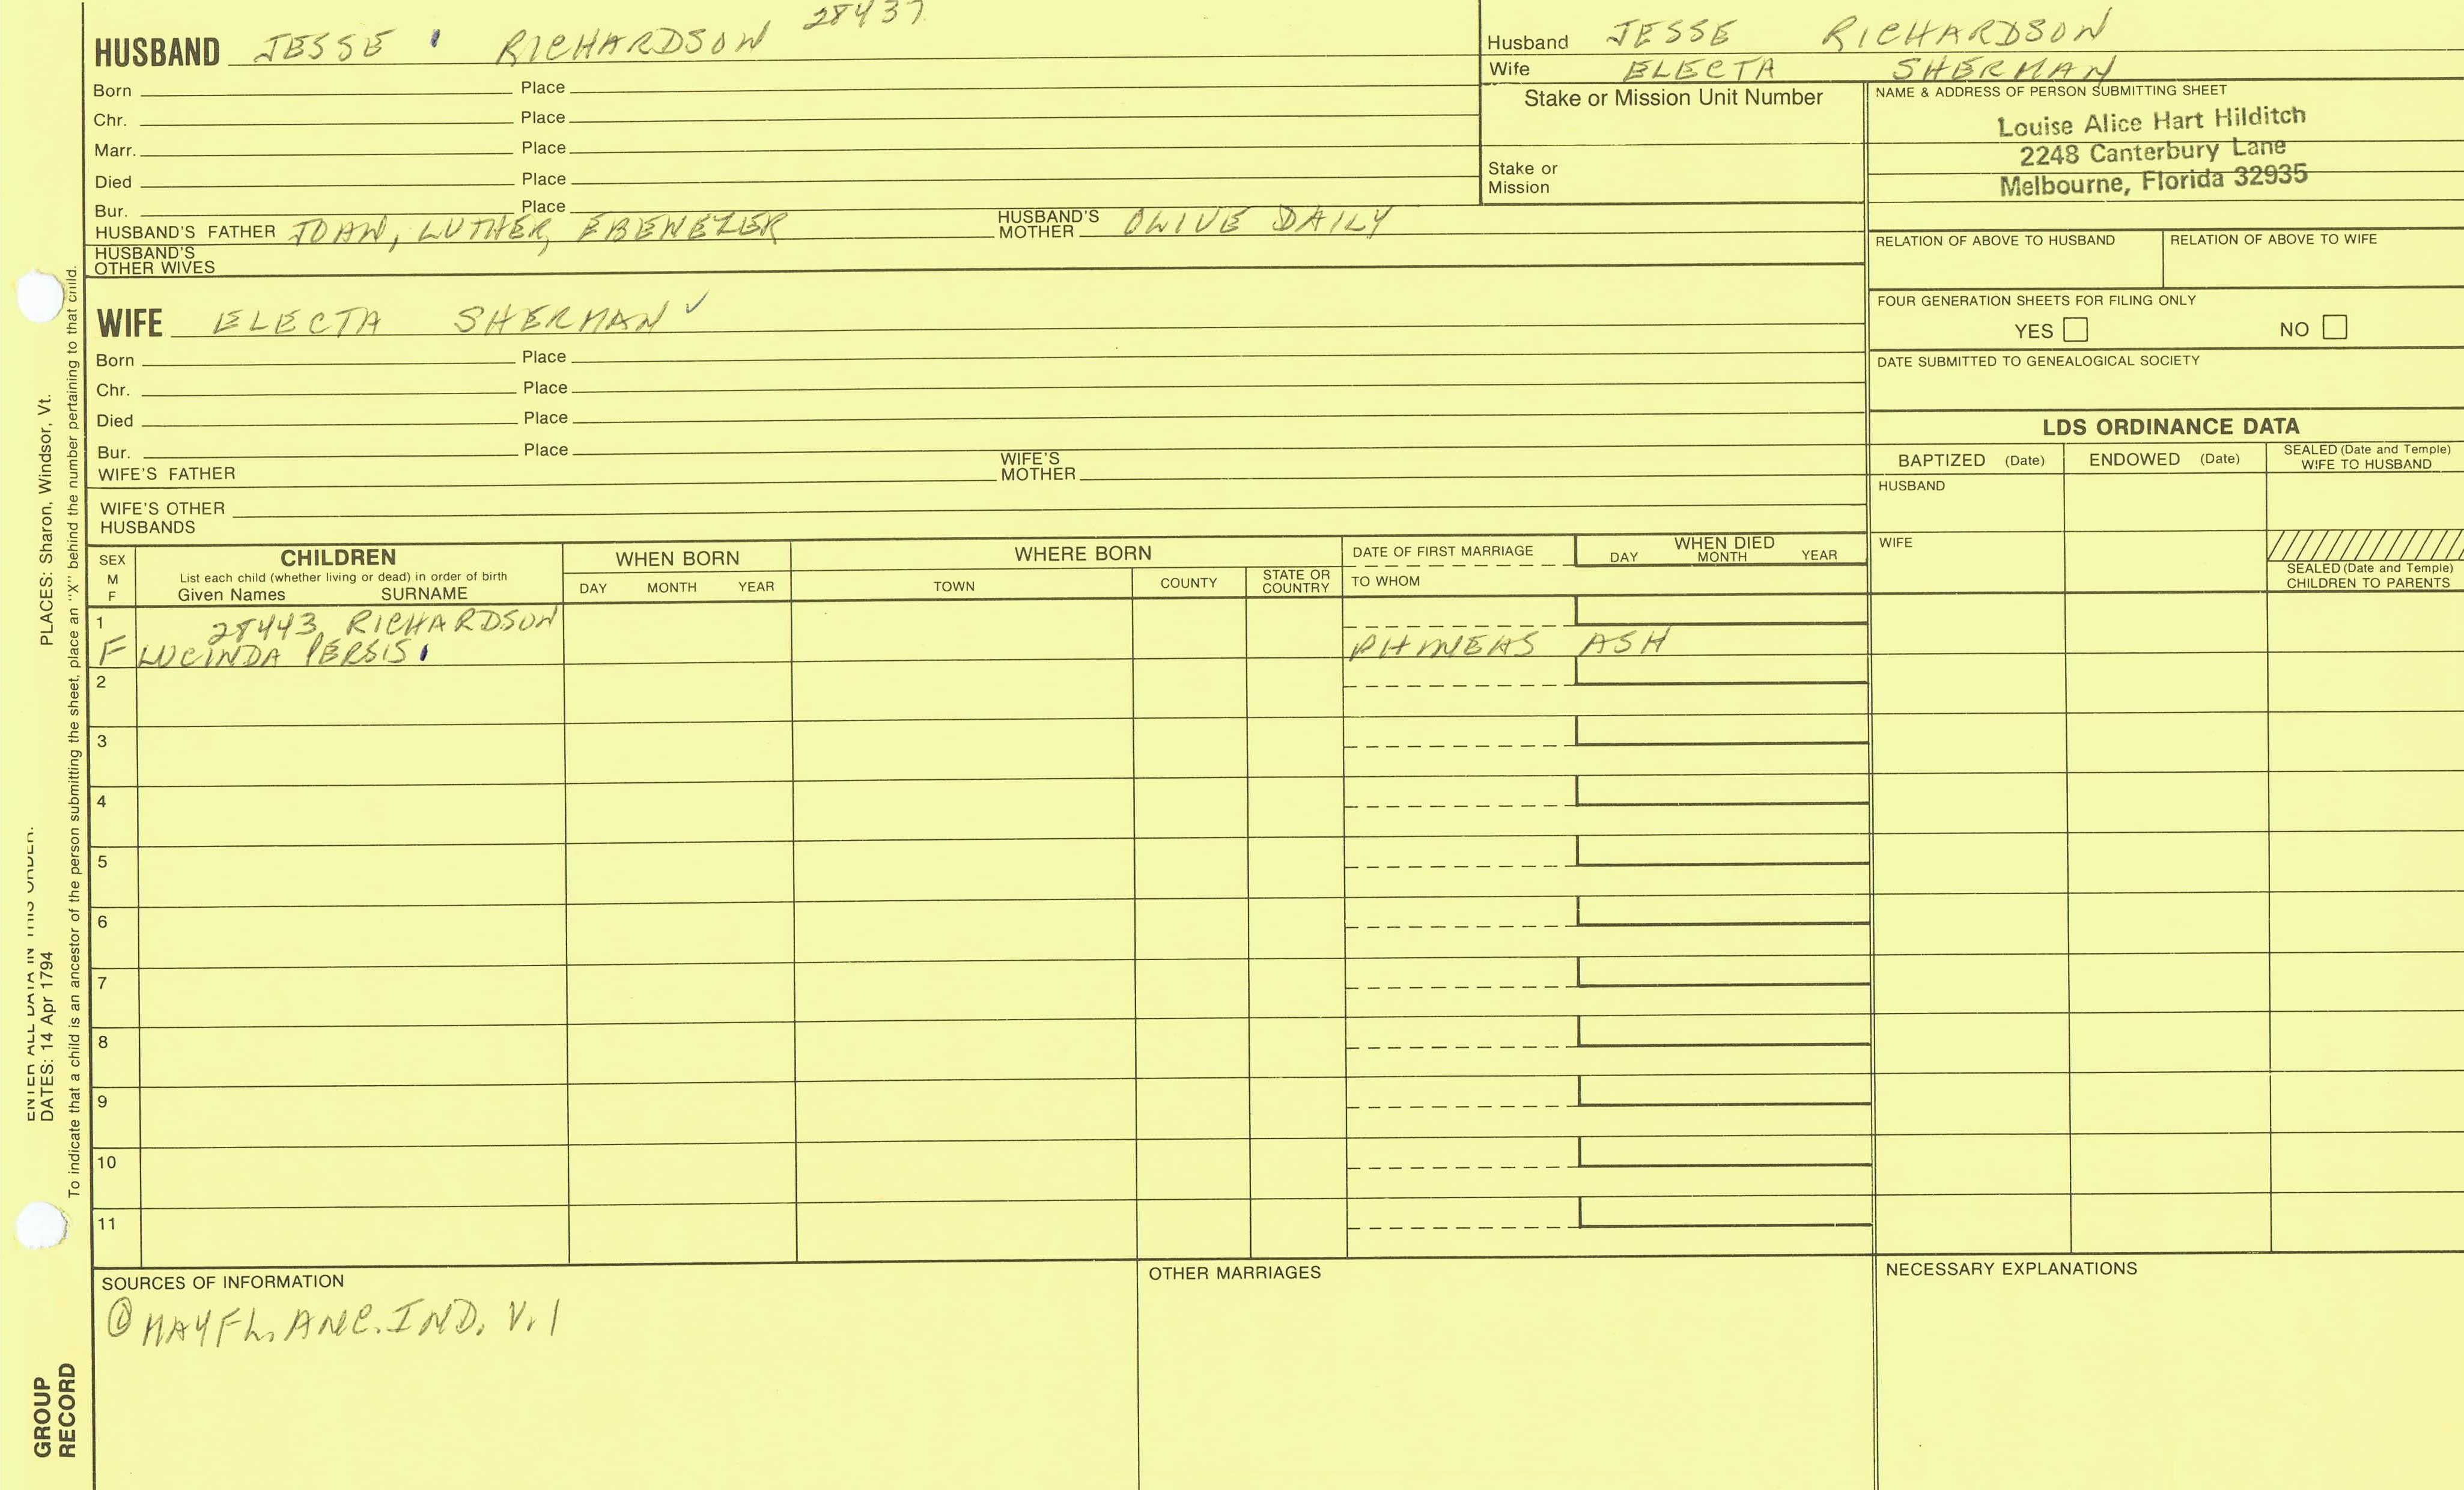 28437
HUSBAND JESSE RICHARDSON
Born Place
Chr. Place
Marr. Place
Died Place
Bur. Place
HUSBAND'S FATHER JOAN, LUTHER, EBENEZER HUSBAND'S MOTHER OLIVE DAILY
HUSBAND'S OTHER WIVES
WIFE ELECTA SHERMAN ✓
Born Place
Chr. Place
Died Place
Bur. Place
WIFE'S FATHER WIFE'S MOTHER
WIFE'S OTHER HUSBANDS
Husband JESSE RICHARDSON
Wife ELECTA SHERMAN
Stake or Mission Unit Number
Stake or Mission
NAME & ADDRESS OF PERSON SUBMITTING SHEET
Louise Alice Hart Hilditch
2248 Canterbury Lane
Melbourne, Florida 32935
RELATION OF ABOVE TO HUSBAND RELATION OF ABOVE TO WIFE
FOUR GENERATION SHEETS FOR FILING ONLY
YES NO
DATE SUBMITTED TO GENEALOGICAL SOCIETY
LDS ORDINANCE DATA
BAPTIZED (Date) ENDOWED (Date) SEALED (Date and Temple) WIFE TO HUSBAND
HUSBAND
WIFE
SEALED (Date and Temple) CHILDREN TO PARENTS
SEX M F
CHILDREN
List each child (whether living or dead) in order of birth
Given Names SURNAME
WHEN BORN
DAY MONTH YEAR
WHERE BORN
TOWN COUNTY STATE OR COUNTRY
DATE OF FIRST MARRIAGE
TO WHOM
WHEN DIED
DAY MONTH YEAR
1 28443 RICHARDSON
F LUCINDA PERSIS PHINEAS ASH
2
3
4
5
6
7
8
9
10
11
SOURCES OF INFORMATION
① MAYFL. ANC. IND. V. 1
OTHER MARRIAGES
NECESSARY EXPLANATIONS
ENTER ALL DATA IN THIS ORDER:
DATES: 14 Apr 1794 PLACES: Sharon, Windsor, Vt.
To indicate that a child is an ancestor of the person submitting the sheet, place an "X" behind the number pertaining to that child.
GROUP
RECORD